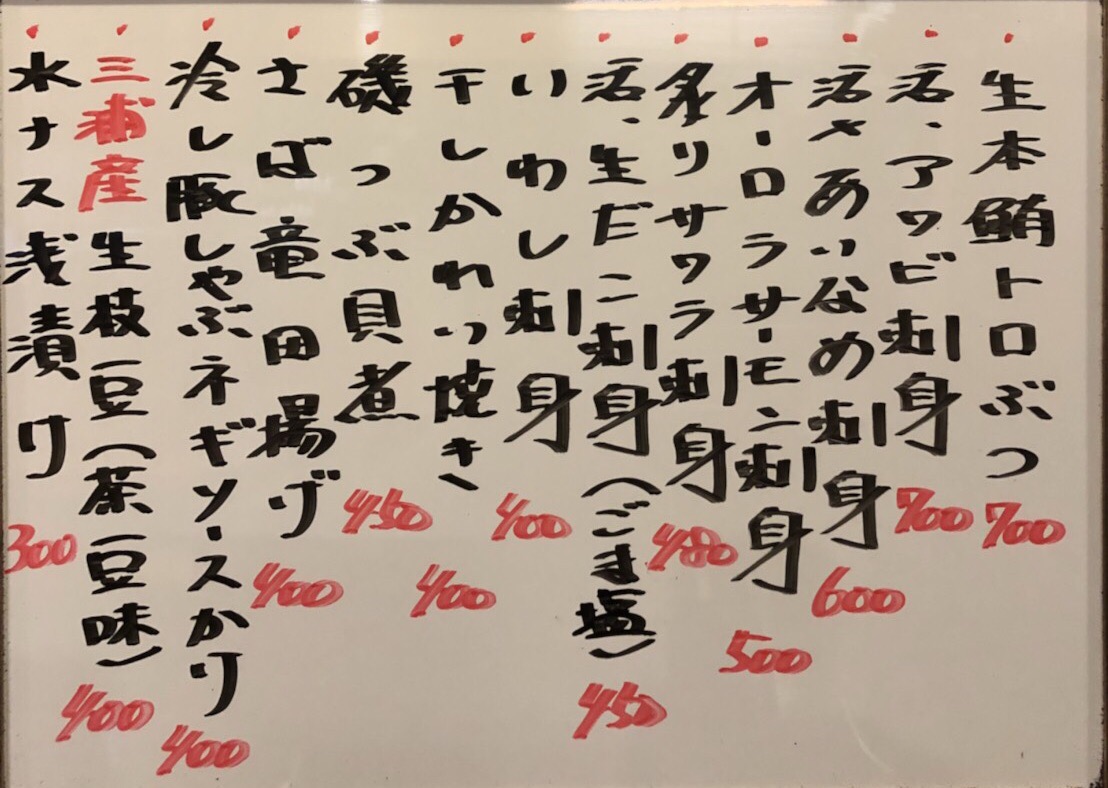 生本鮪トロぶつ 700
活、アワビ刺身 700
活〆あいなめ刺身 600
オーロラサーモン刺身 500
炙りサワラ刺身 480
活、生だこ刺身(ごま塩) 450
いわし刺身 400
干しかれい焼き 400
磯つぶ貝煮 450
さば竜田揚げ 400
冷し豚しゃぶネギソースかけ 400
三浦産生枝豆(茶豆味) 400
水ナス浅漬け 300